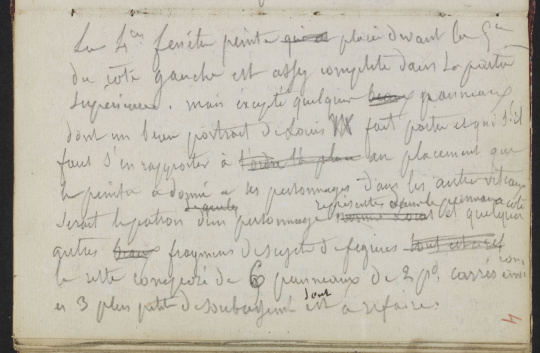 La 4me fenêtre peinte placée devant la 5me
du côté gauche est assez complète dans la partie
supérieure. mais excepté quelques beaux panneaux
dont un beau portrait de Louis IX fait partie et qui s'il
faut s'en rapporter à l'ordre au placement que
le peintre a donné à ses personnages dans les autres vitraux
serait le patron d'un personnage représenté à côté et quelques
autres beaux fragmens de sujets de figures tout est neuf
le reste composé de 6 panneaux de 2 po. carrés
et 3 plus petits de soubassement sont à refaire.